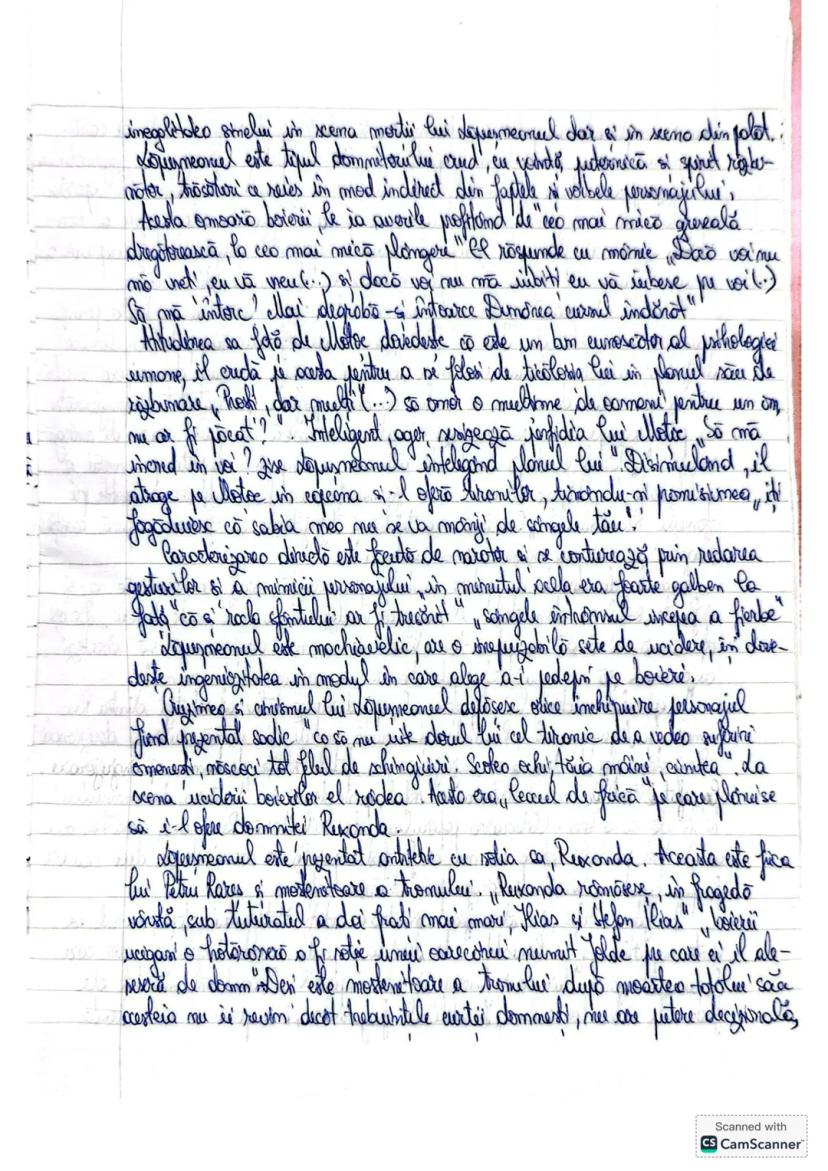 inegalitatea sinelui in scena mortii lui Lăpușneanul dar si in scena din palat.
Lăpușneanul este tipul domnitorului crud, cu voință puternică si spirit răzbu-
nător, trăsături ce reies în mod indirect din faptele si vorbele personajului.
Acesta omoară boierii, le ia averile profitând de "cea mai mică greseală
dregătorească, la cea mai mică plângere" El răspunde cu mânie „Dacă voi nu
mă vreti, eu vă vreu (...) si dacă voi nu mă iubiti eu vă iubesc pe voi (..)
Să mă întorc? Mai degrabă -si întoarce Dunărea cursul îndărăt"
Atitudinea sa fată de Motoc dovedeste că este un bun cunoscător al psihologiei
umane, îl crută pe acesta pentru a se folosi de ticălosia lui in planul său de
răzbunare „Prosti, dar multi (...) să omor o multime de oameni pentru un om,
nu ar fi păcat?". Inteligent, ager, sesizează perfidia lui Motoc „Să mă
incred în voi? zise Lăpușneanul intelegând planul lui" Disimuland, îl
atrage pe Motoc in capcana si-l oferă tiranilor, tinându-si promisiunea „iti
făgăduiesc că sabia mea nu se va mânji de sângele tău".
Caracterizarea directă este făcută de narator si se conturează prin redarea
gesturilor si a mimicii personajului „in minutul acela era foarte galben la
fată" "că si racla sfântului ar fi tresărit" „sângele intr-însul incepea a fierbe"
Lăpușneanul este machiavelic, are o inepuizabilă sete de ucidere, în dove-
deste ingeniozitatea in modul in care alege a-i pedepsi pe boieri.
Cruzimea si cinismul lui Lăpușneanul depăsesc orice închipuire personajul
fiind prezentat sadic "ca să nu uite dorul lui cel tiranic de a vedea suferini
omenesti, născoci tot felul de schingiuiri. Scotea ochi, tăia mâini, ciuntea". La
scena uciderii boierilor el râdea. Acesta era „leacul de frică" pe care plănuise
să i-l ofere domnitei Ruxanda.
Lăpușneanul este prezentat antitetic cu sotia sa, Ruxanda. Aceasta este fiica
lui Petru Rares si mostenitoare a tronului. „Ruxanda rămăsese, in fragedă
vârstă, sub tuturatul a doi frati mai mari, Ilias si Stefan Ilias" „boierii
ucigasi o hotărâseră a fi sotie unui oarecărui numit Jolde pe care ei îl ale-
seseră de domn" Desi este mostenitoare a tronului după moartea tatălui său
acesteia nu ii revin decât trebuintele curtei domnesti, nu are putere decizională,
Scanned with
CS CamScanner